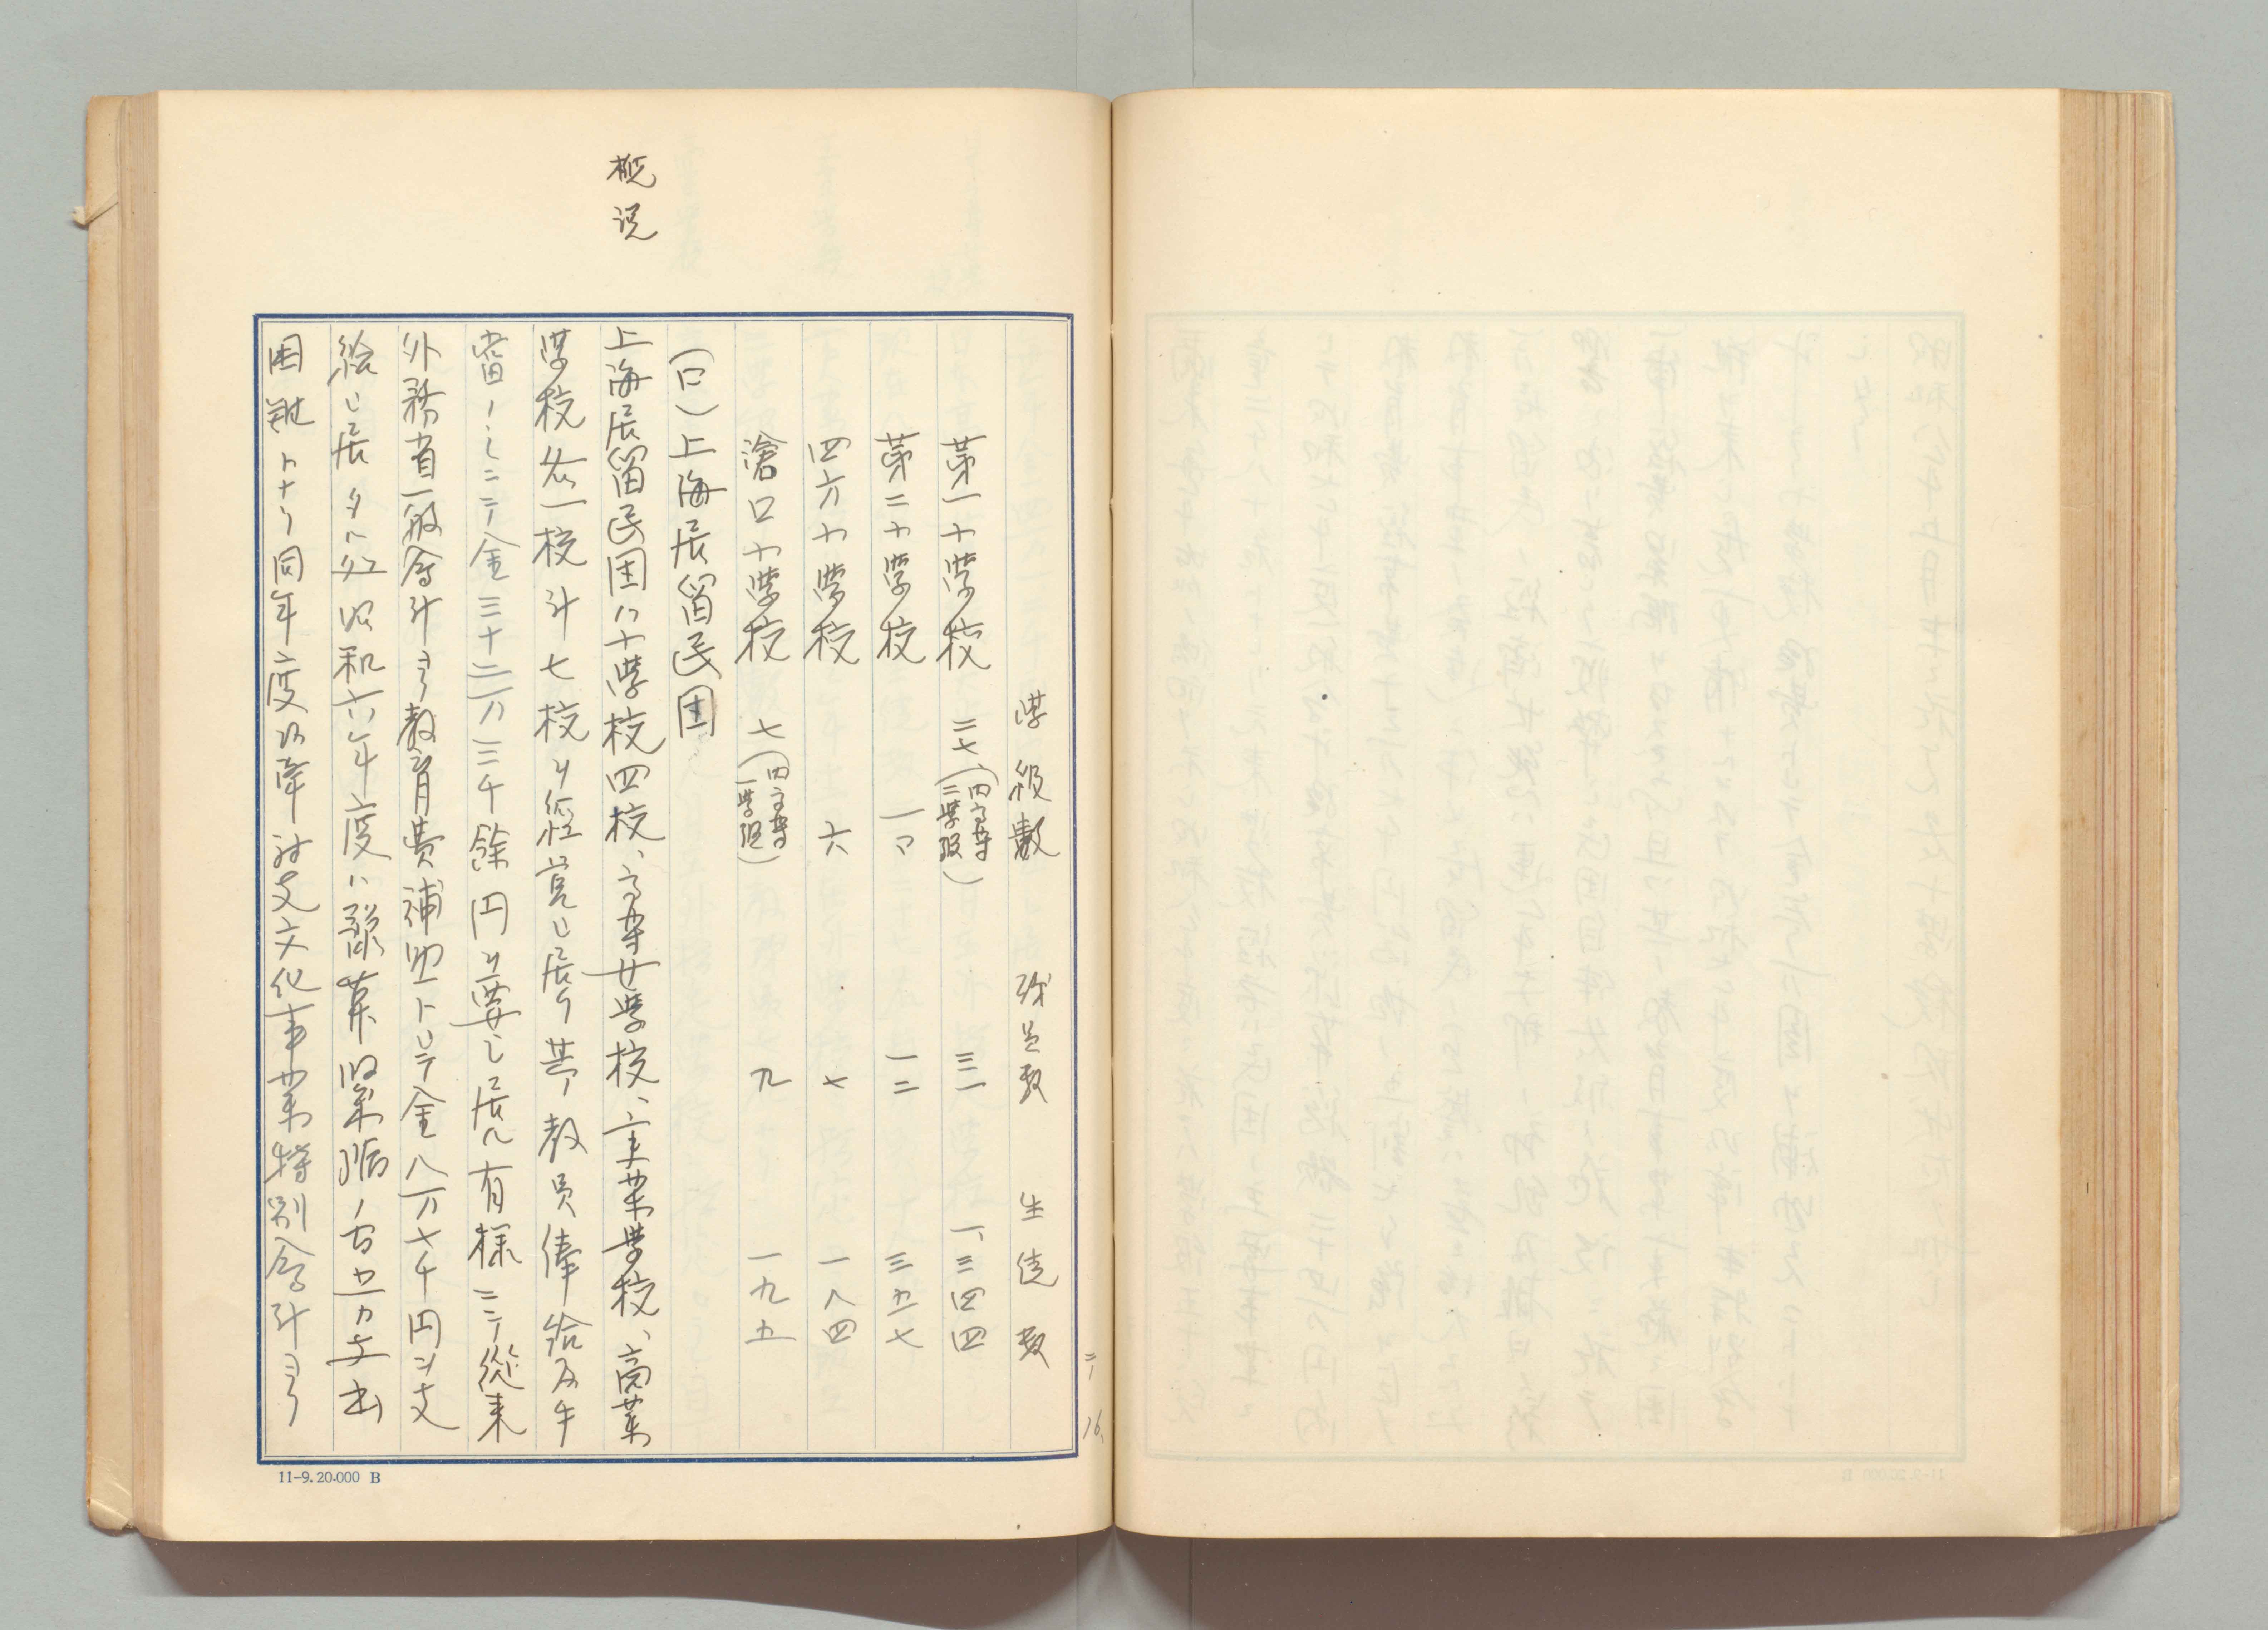 学級数 職員数 生徒数
第一小学校 二七(内高等三学級) 三一 一、三四四
第二小学校 一〇 一二 三五七
四方小学校 六 七 一八四
滄口小学校 七(内高等一学級) 九 一九五
(ロ)上海居留民団
概説
上海居留民団ハ小学校四校、高等女学校、実業学校、商業
学校各一校計七校ヲ経営シ居リ其ノ教員俸給及手
當ノミニテ金三十二万三千餘円ヲ要シ居ル有様ニテ從来
外務省一般会計ヨリ教育費補助トシテ金八万七千円ヲ支
給シ居タル処昭和六年度ハ予算緊縮ノ為支出
困難トナリ同年度以降対支文化事業特別会計ヨリ
ニ、16、
11-9. 20.000 B